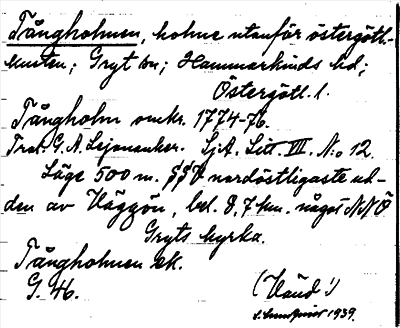 Tångholmen, holme utanför östergötl.-
kusten; Gryt sn; Hammarkinds hd;
Östergötl. l.
Tångholm omkr. 1774-76.
Trol. G. A. Lejonanker. SjA. Litt. III. No 12.
Läge 500 m. SSO nordöstligaste ud-
den av Väggön, bel. 8,7 km. något NNÖ
Gryts kyrka.
Tångholmen ek.
G. 46.
1939.